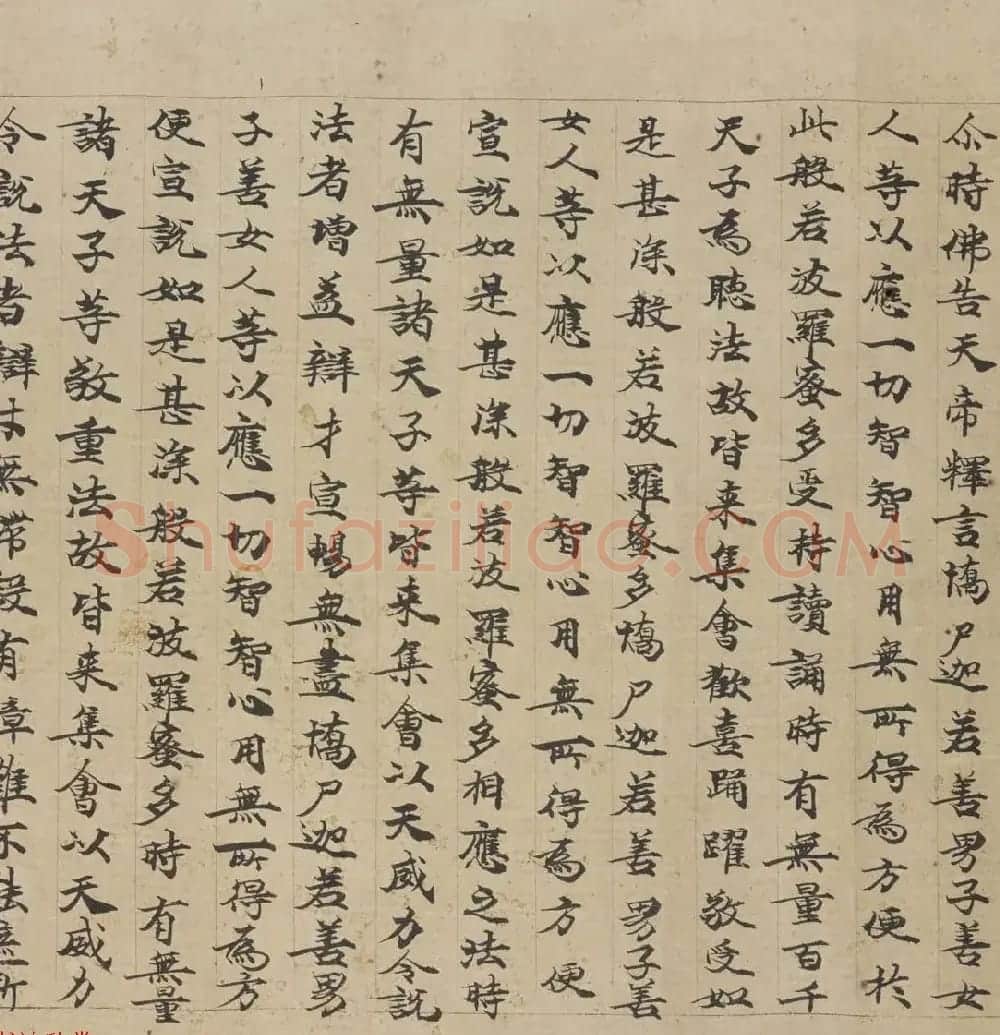 尒時佛告天帝釋言憍尸迦若善男子善女
人等以應一切智智心用無所得為方便於
此般若波羅蜜多受持讀誦時有無量百千
天子為聽法故皆来集會歡喜踊躍敬受如
是甚深般若波羅蜜多憍尸迦若善男子善
女人等以應一切智智心用無所得為方便
宣說如是甚深般若波羅蜜多相應之法時
有無量諸天子等皆来集會以天威力令說
法者增益辯才宣暢無盡憍尸迦若善男
子善女人等以應一切智智心用無所得為方
便宣說如是甚深般若波羅蜜多時有無量
諸天子等敬重法故皆来集會以天威力
令說法者辯才無滯設有障難不
Shufaziliao.COM